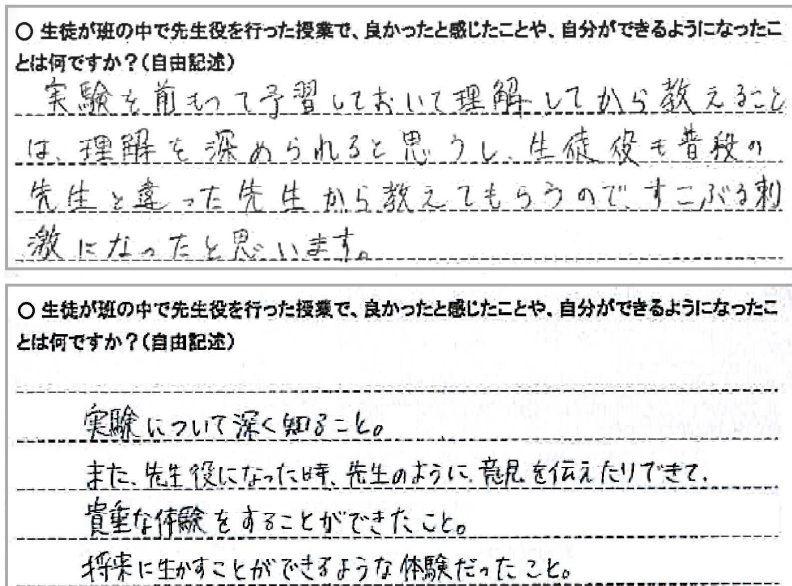 ○ 生徒が班の中で先生役を行った授業で、良かったと感じたことや、自分ができるようになったこ
とは何ですか？(自由記述)
実験を前もって予習しておいて理解してから教えること
は、理解を深められると思うし、生徒役も普段の
先生と違った先生から教えてもらうので、すこぶる刺
激になったと思います。
○ 生徒が班の中で先生役を行った授業で、良かったと感じたことや、自分ができるようになったこ
とは何ですか？(自由記述)
実験について深く知ること。
また、先生役になった時、先生のように、意見を伝えたりできて、
貴重な体験をすることができたこと。
将来に生かすことができるような体験だったこと。